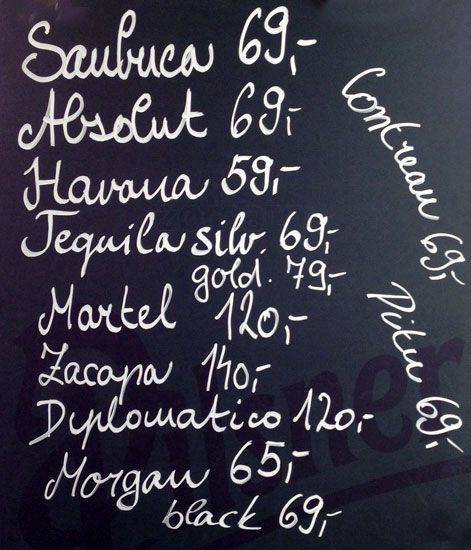 Saubuca 69,-
Absolut 69,-
Havana 59,-
Tequila silv. 69,-
gold. 79,-
Martel 120,-
Zacapa 140,-
Diplomatico 120,-
Morgan 65,-
black 69,-
Contreau 69,-
Pitu 69,-
Pilsner